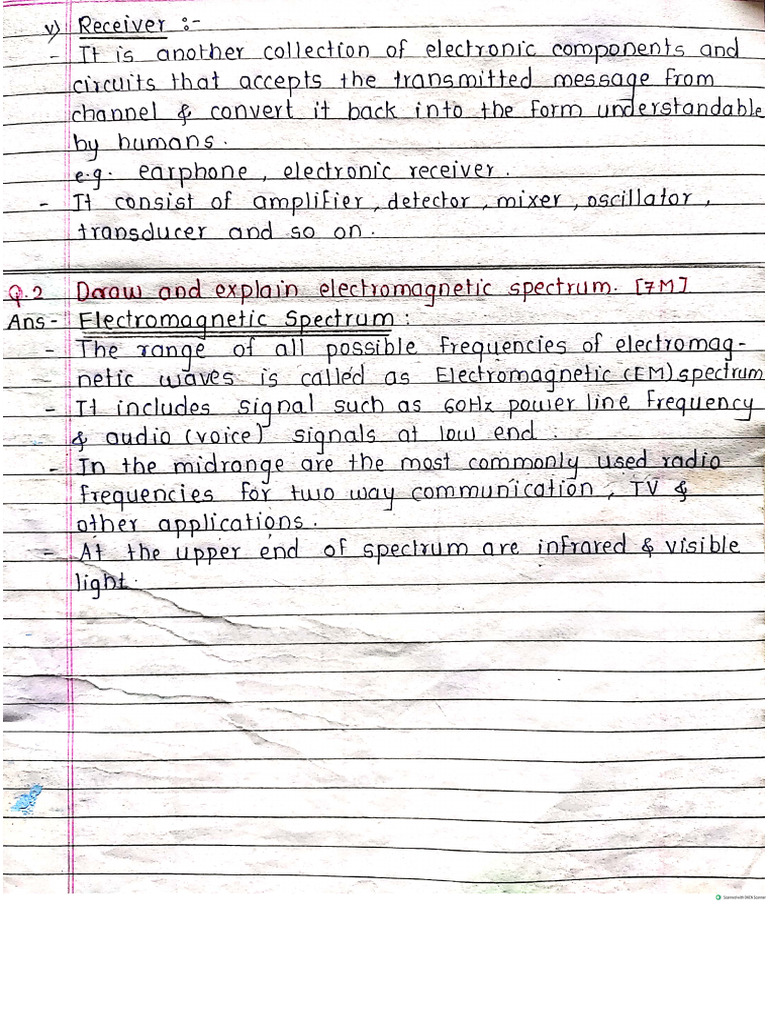 v) Receiver :-
- It is another collection of electronic components and
circuits that accepts the transmitted message from
channel & convert it back into the form understandable
by humans.
e.g. earphone, electronic receiver.
- It consist of amplifier, detector, mixer, oscillator,
transducer and so on.
Q.2 Draw and explain electromagnetic spectrum. [7M]
Ans- Electromagnetic Spectrum :
- The range of all possible frequencies of electromag-
- netic waves is called as Electromagnetic (EM) spectrum
- It includes signal such as 60Hz power line frequency
& audio (voice) signals at low end.
- In the midrange are the most commonly used radio
frequencies for two way communication, TV &
other applications.
- At the upper end of spectrum are infrared & visible
light.
Scanned with OKEN Scanner